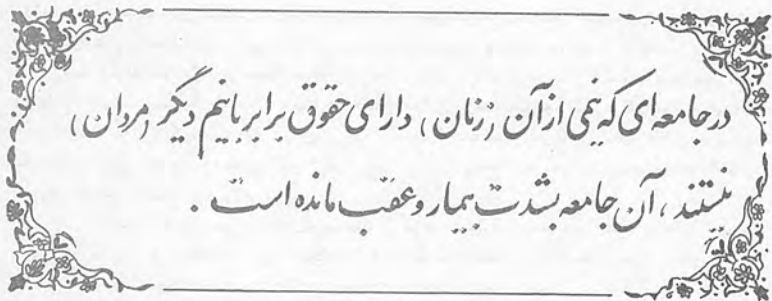 در جامعه‌ای که نیمی از آن (زنان) دارای حقوق برابر با نیم دیگر (مردان)
نیستند، آن جامعه بشدت بیمار و عقب مانده است.